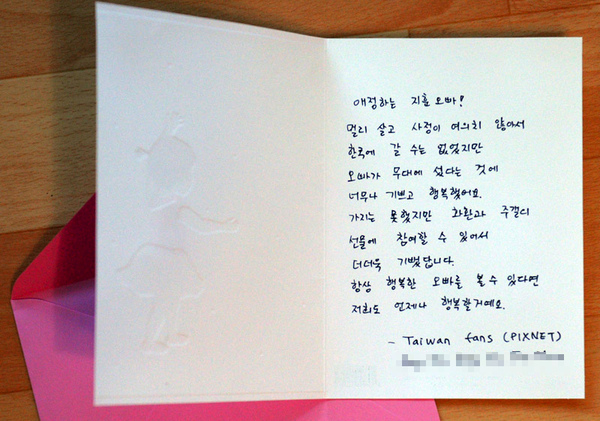 애정하는 지훈 오빠!
멀리 살고 사정이 여의치 않아서
한국에 갈 수는 없었지만
오빠가 무대에 섰다는 것에
너무나 기쁘고 행복했어요.
가지는 못했지만 화환과 주걸디
선물에 참여할 수 있어서
더더욱 기뻤답니다.
항상 행복한 오빠를 볼 수 있다면
저희도 언제나 행복할거예요.
- Taiwan fans (PIXNET)